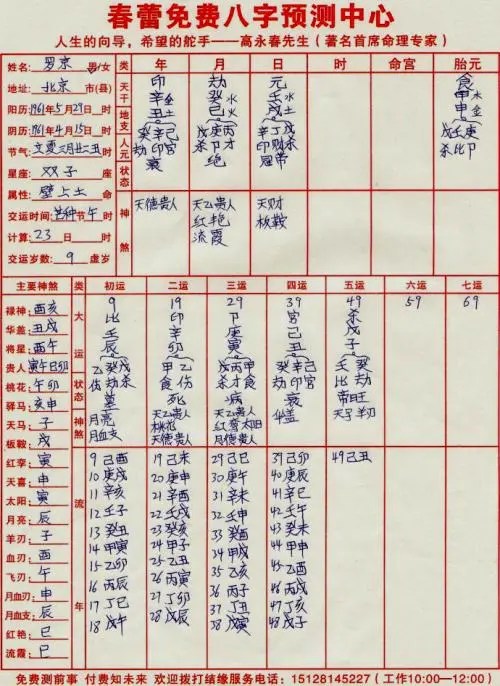 春蕾免费八字预测中心
人生的向导，希望的舵手——高永春先生（著名首席命理专家）
姓名：罗京 男/女 类 年 月 日 时 命宫 胎元
地址：北京 市(县)
阳历：1961年5月29日 时
阴历：1961年4月15日 时
节气：立夏三月廿二丑 时
星座：双子 座
属性：壁上土 命
交运时间：芒种节午 时
计算：23 日 时
交运岁数：9 虚岁
天干 地支 人元 状态
印 劫 元 食
辛金 癸水 壬水 甲木
丑土 巳火 戌土 申金
癸辛己 戊庚丙 辛丁戊 戊壬庚
劫印官 杀卩才 印财杀 杀比卩
衰 绝 冠带
神煞
天德贵人 天乙贵人 天财
红艳 板鞍
流霞
主要神煞 类 初运 二运 三运 四运 五运 六运 七运
禄神：酉亥
华盖：丑戌
将星：酉午
贵人：寅午巳卯
桃花：午卯
驿马：亥申
天马：子
板鞍：戌
红孛：寅
天喜：申
太阳：寅
月亮：辰
羊刃：子
血刃：酉
飞刃：午
月血刃：申
月血支：辰
红艳：巳
流霞：巳
大运 状态 神煞
9 19 29 39 49 59 69
比 印 卩 官 杀
壬 辛 庚 己 戊
辰 卯 寅 丑 子
乙癸戊 甲乙 戊丙甲 癸辛己 壬癸
伤劫杀 食伤 杀才食 劫印官 比劫
墓 死 病 衰 帝旺
月亮 天乙贵人 天乙贵人 华盖 羊刃
月血支 桃花 红孛太阳
天德贵人 月德贵人
流年
9己酉 19己未 29己巳 39己卯 49己丑
10庚戌 20庚申 30庚午 40庚辰
11辛亥 21辛酉 31辛未 41辛巳
12壬子 22壬戌 32壬申 42壬午
13癸丑 23癸亥 33癸酉 43癸未
14甲寅 24甲子 34甲戌 44甲申
15乙卯 25乙丑 35乙亥 45乙酉
16丙辰 26丙寅 36丙子 46丙戌
17丁巳 27丁卯 37丁丑 47丁亥
18戊午 28戊辰 38戊寅 48戊子
免费测前事 付费知未来 欢迎拨打结缘服务电话：15128145227（工作10:00—12:00）